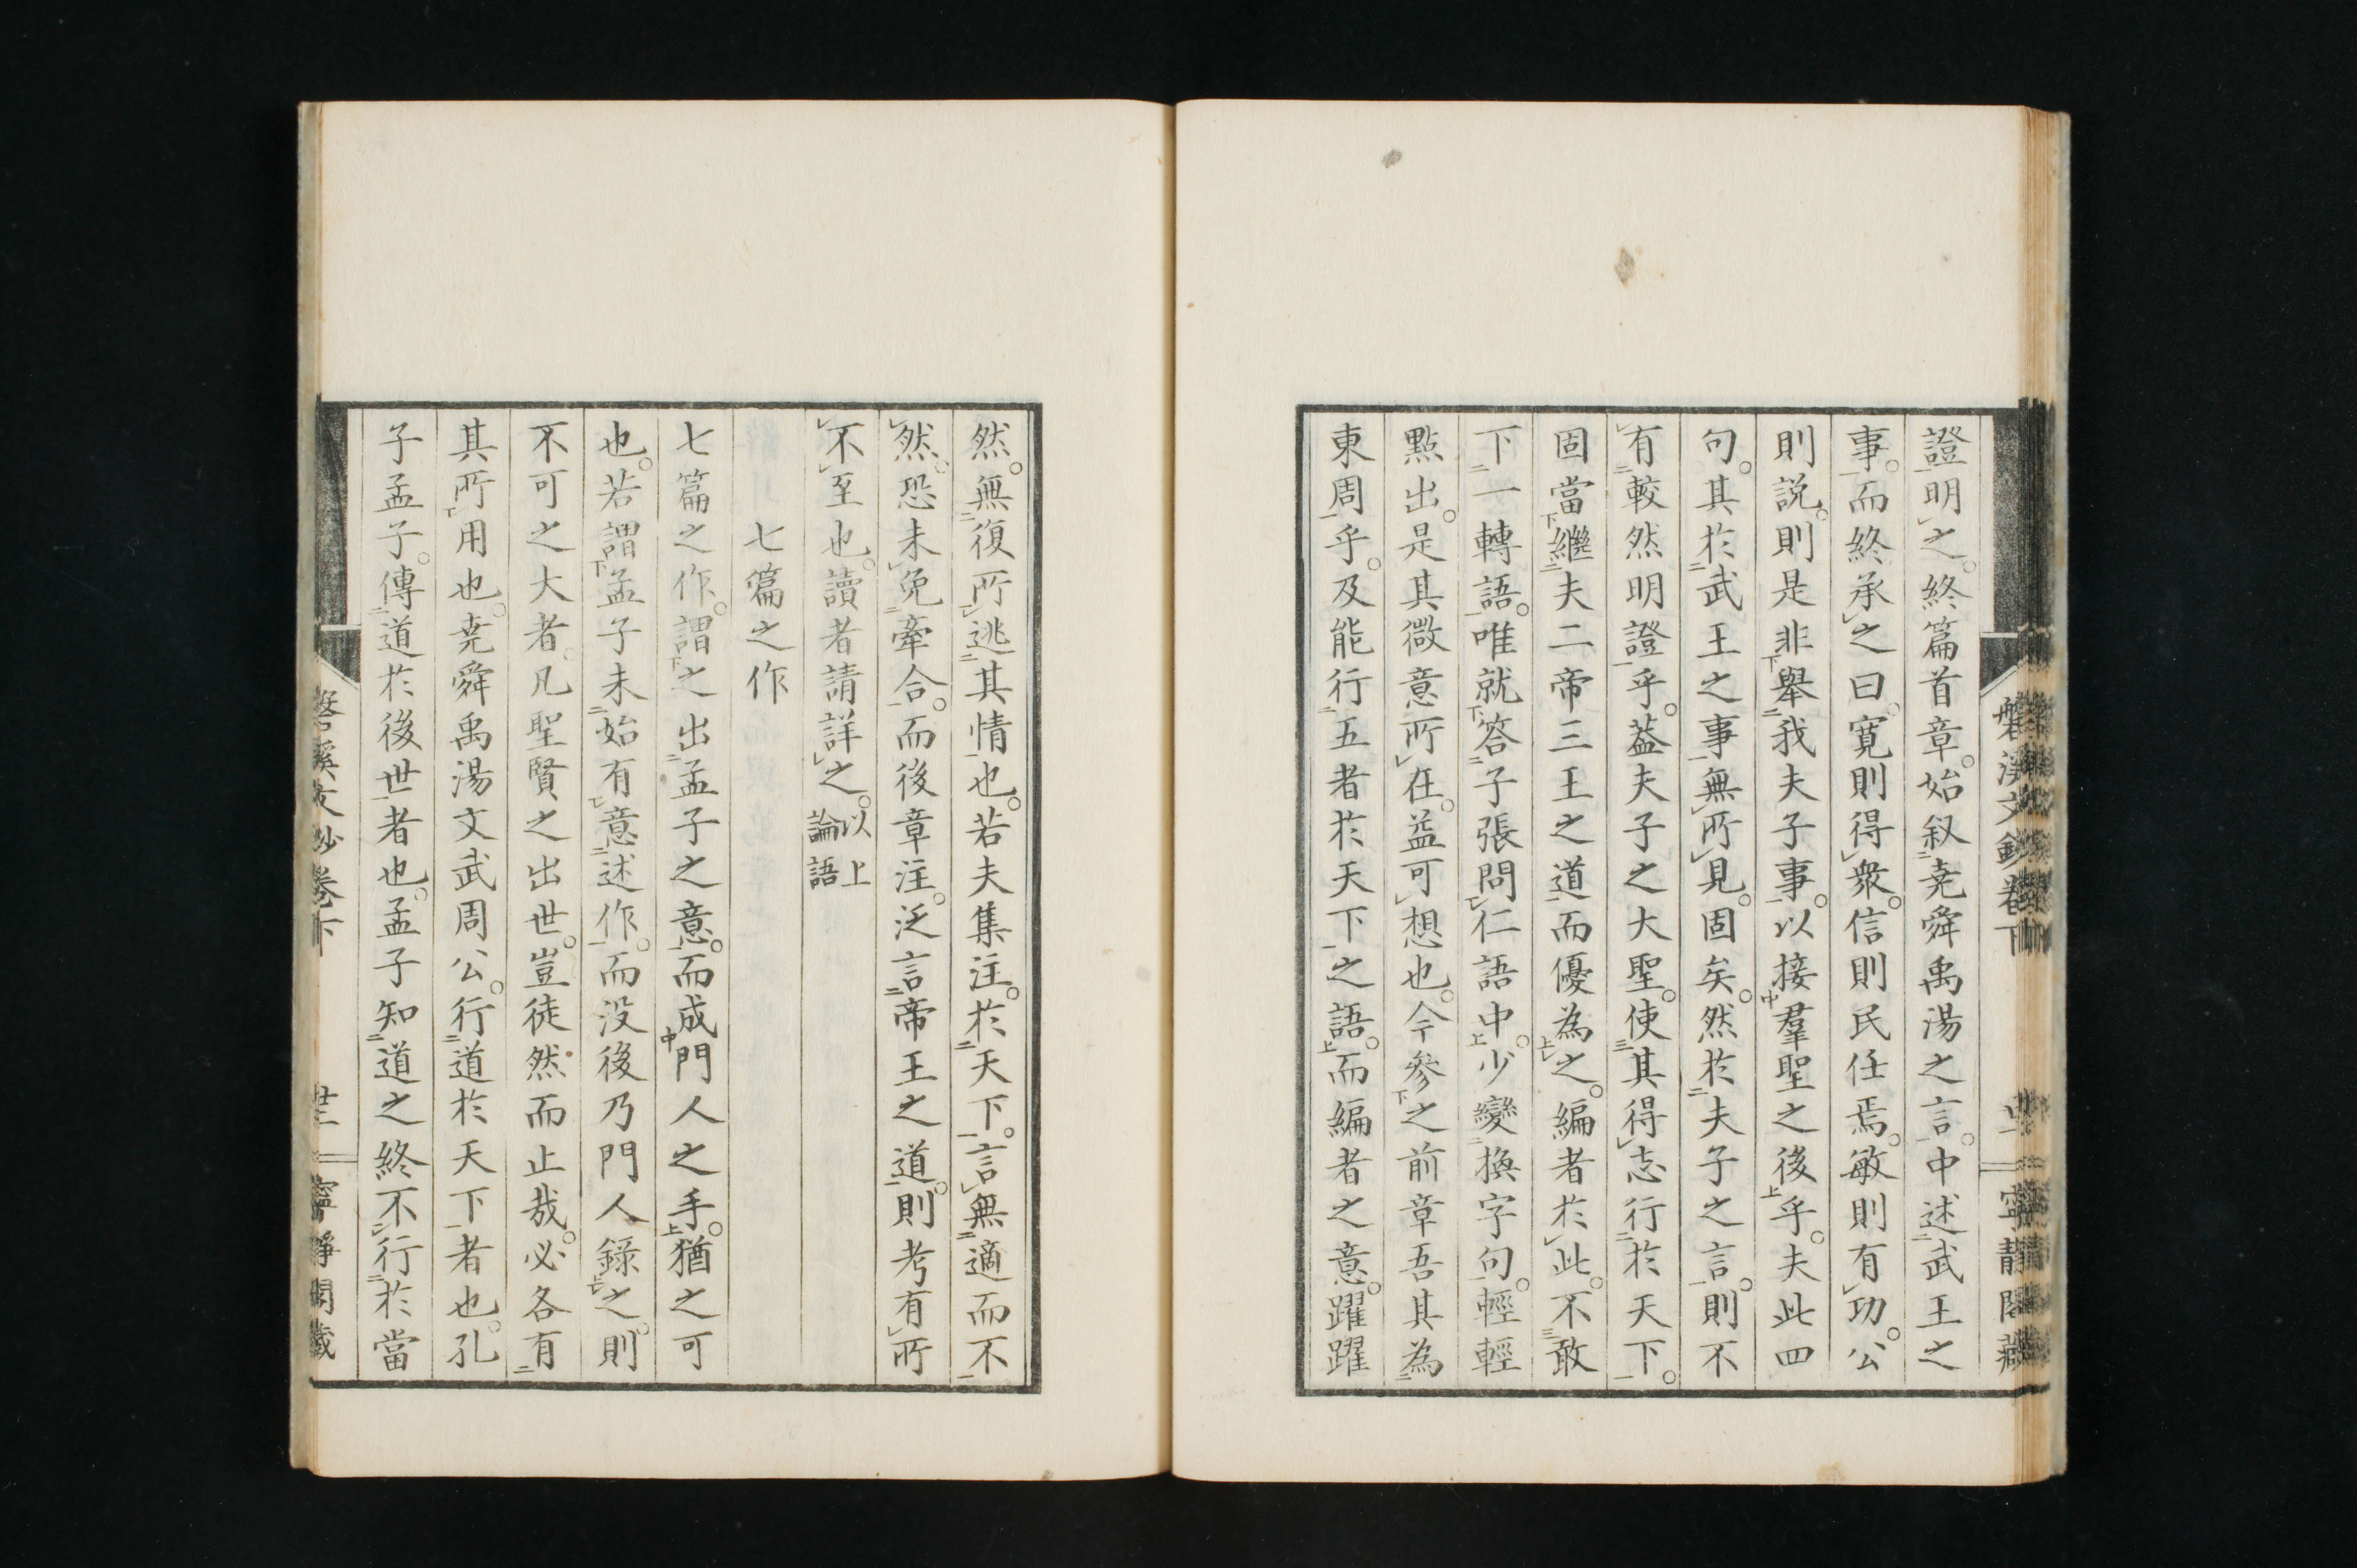 證明之。終篇首章。始叙堯舜禹湯之言。中述武王之
事。而終承之曰。寛則得衆。信則民任焉。敏則有功。公
則説。則是非舉我夫子事。以接羣聖之後乎。夫此四
句。其於武王之事無所見。固矣。然於夫子之言。則不
有較然明證乎。葢夫子之大聖。使其得志行於天下。
固當繼夫二帝三王之道而優為之。編者於此。不敢
下一轉語。唯就答子張問仁語中。少變換字句。輕輕
點出。是其微意所在。益可想也。今參之前章吾其為
東周乎。及能行五者於天下之語。而編者之意。躍躍
然。無復所逃其情也。若夫集注。於天下。言無適而不
然。恐未免牽合。而後章注。泛言帝王之道。則考有所
不至也。讀者請詳之。以上論語
七篇之作
七篇之作。謂之出孟子之意。而成門人之手。猶之可
也。若謂孟子未始有意述作。而没後乃門人錄之。則
不可之大者。凡聖賢之出世。豈徒然而止哉。必各有
其所用也。堯舜禹湯文武周公。行道於天下者也。孔
子孟子。傳道於後世者也。孟子知道之終不行於當
磐溪文鈔卷下
寧靜閣藏